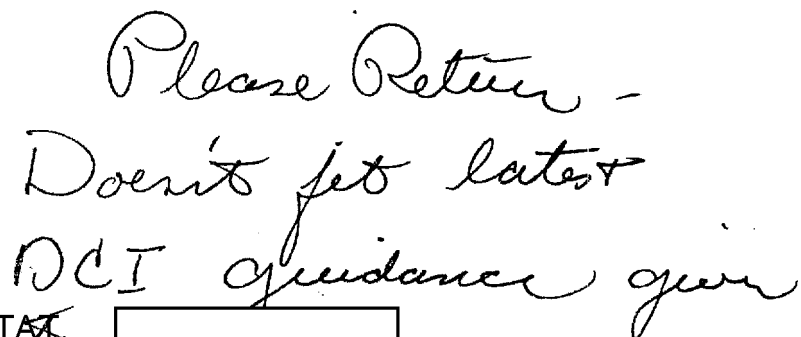 Please Return -
Doesn't fit latest
DCI guidance given
STAT